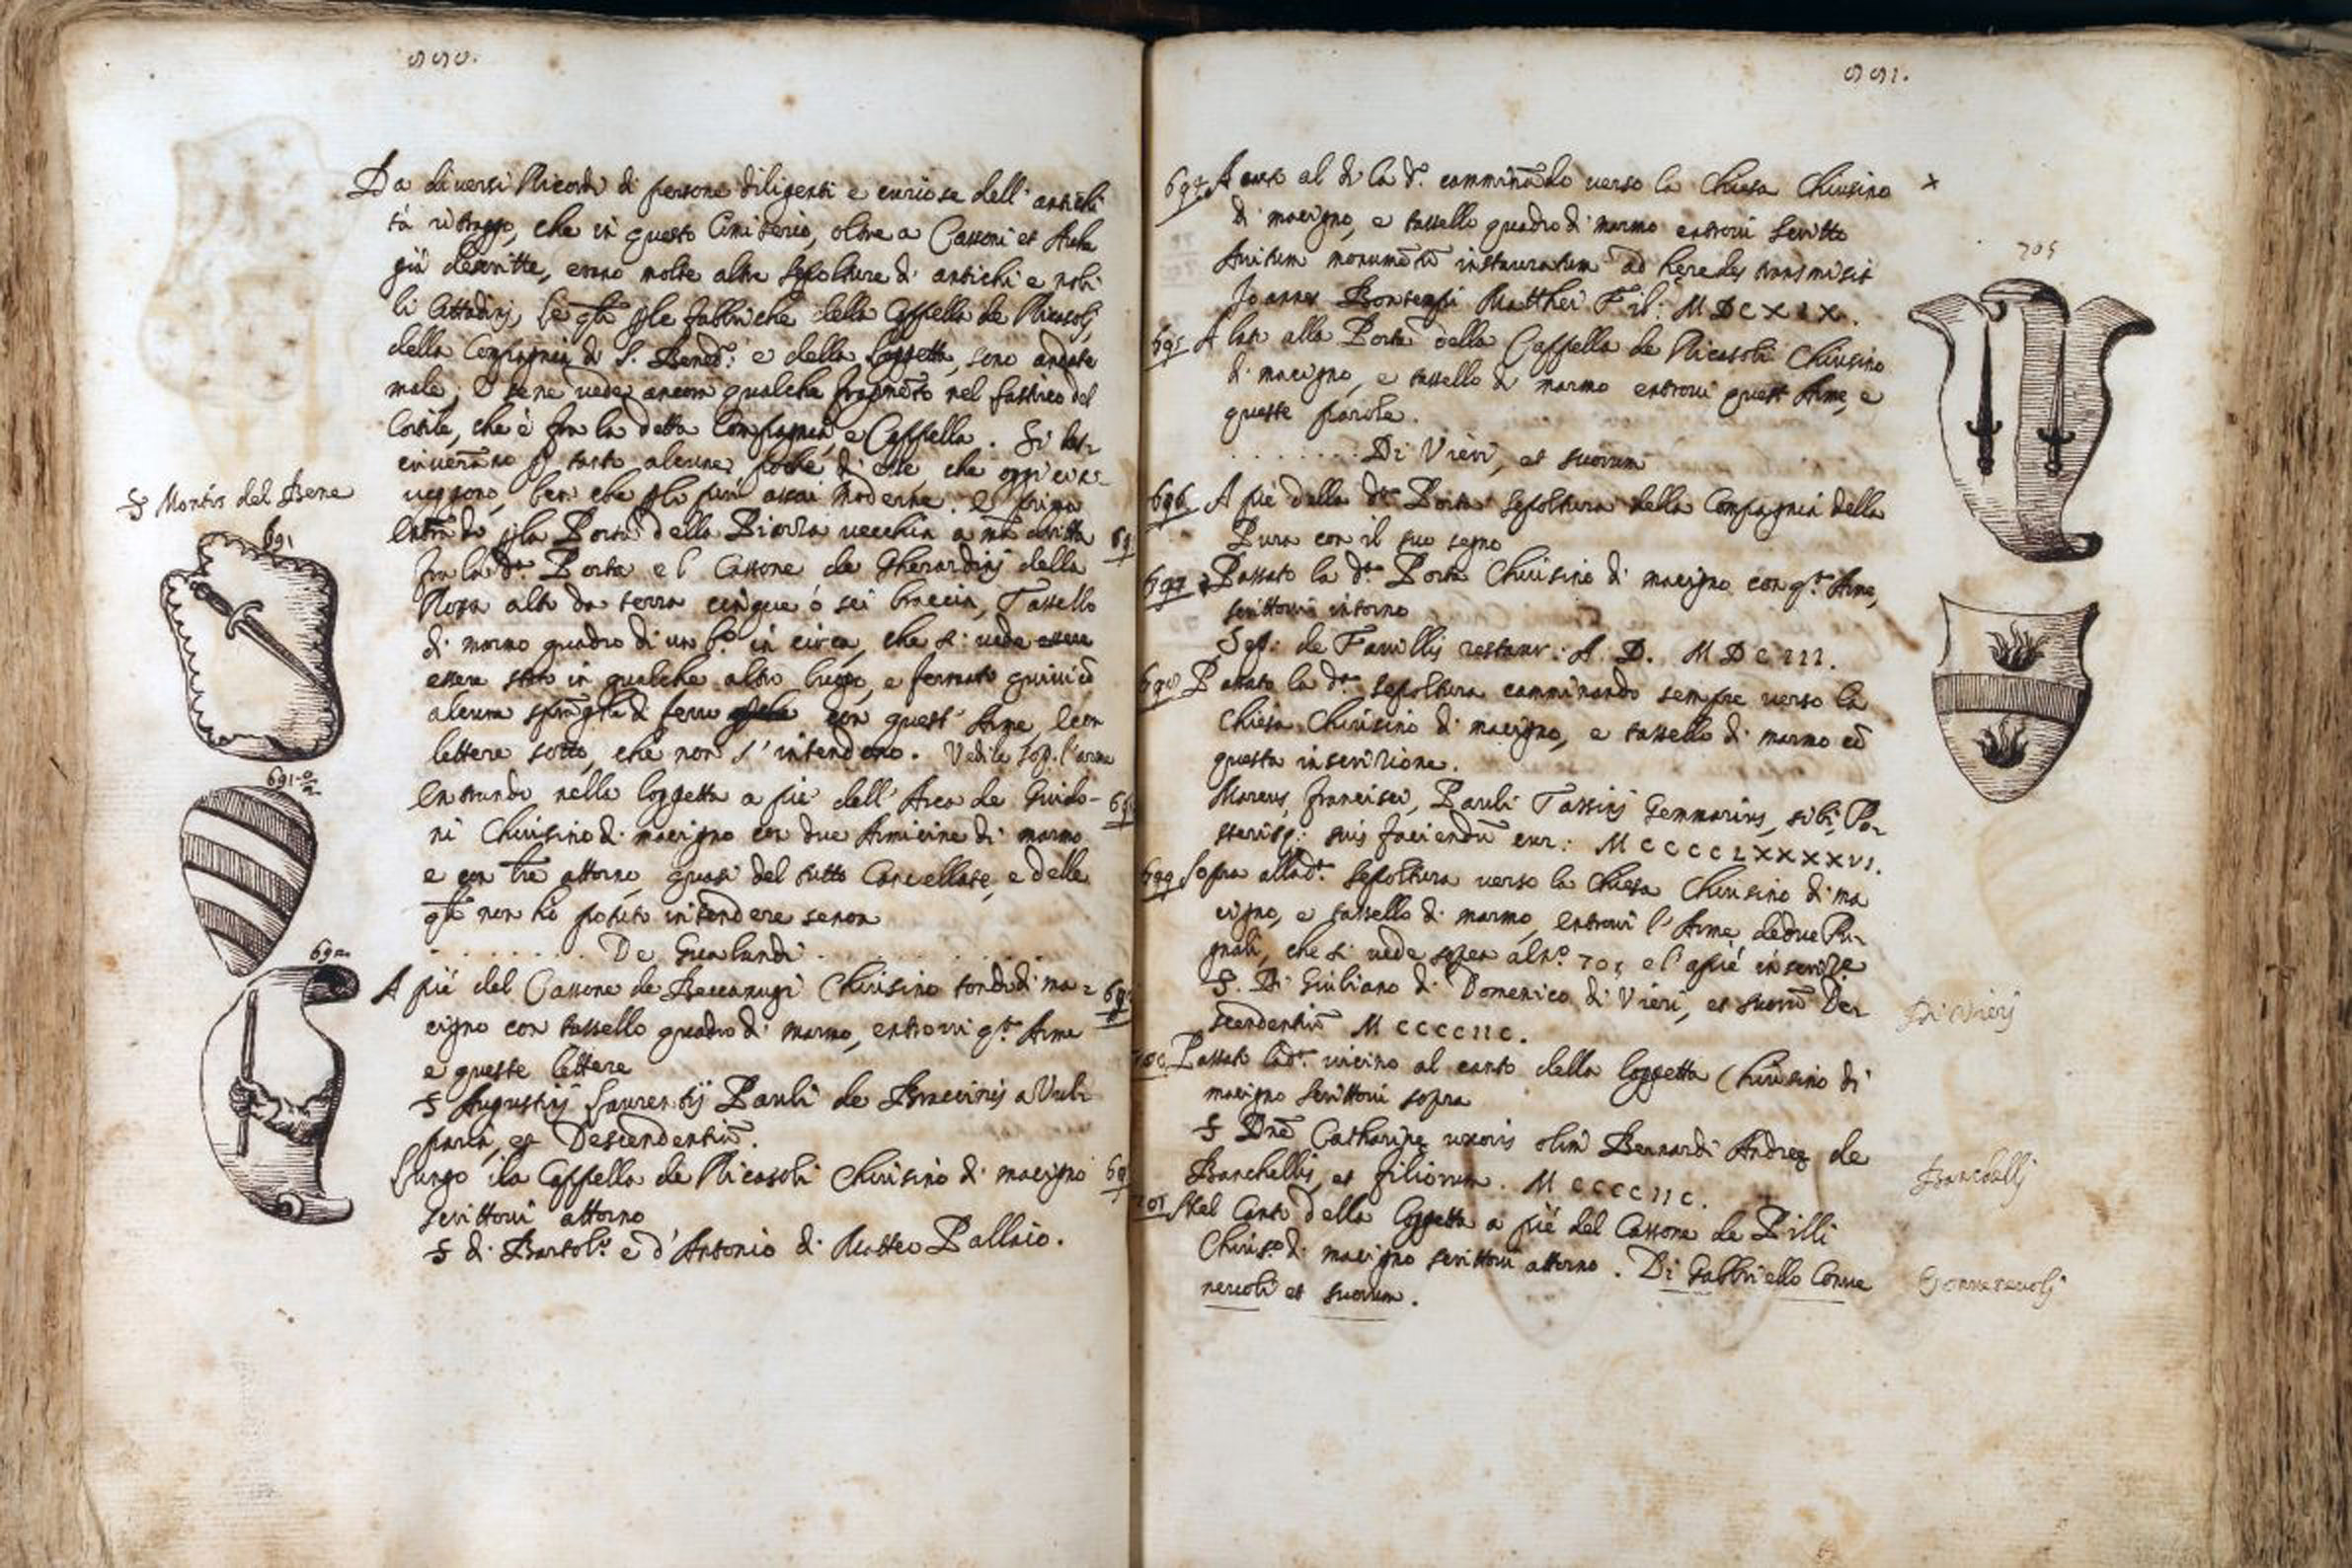 Da diversi Ricordi di persone diligenti e curiose dell' antichi
tà ritraggo, che in questo Cimiterio, oltre a Cassoni et Arche
già descritte, erano molte altre sepolture di antichi e nobi
li Cittadini, le qli ple fabbriche della Cappella de Ricasoli,
della Compagnia di S. Bened: e della Loggetta, sono andate
male; e sene vede ancora qualche fragmēto nel lastrico del
Cortile, che è fra la detta Compagnia, e Cappella. Si
alcune poche di esse che oggi
veggono, ben che assai moderne. E prima
Entrādo pla Porta della Piazza vecchia a mā dritta
fra la da Porta e l' Cassone de Gherardini della
Rosa alto da terra cinque ò sei braccia, Tassello
di marmo quadro di un bo in circa, che si vede
essere stato in qualche altro luogo, e fermato quivi cō
alcune di ferro con quest' Arme, e con
lettere sotto, che non s' intendono. Vedile sop. l'arme
Entrando nella loggetta a piè dell' Arca de Guido-
ni Chiusino di macigno con due Armicine di marmo
e con lre attorno, quasi del tutto Cancellate, e delle
qli non hò potuto intendere senon
. . . . . . . . De Gualandi . . . . . . .
A piè del Cassone de Beccanugi Chiusino tondo di ma=
cigno con tassello quadro di marmo, entrovi qta Arme
e queste lettere
S Augustini Laurentij Pauli de Braccinis a Vulu
paria, et Descendentiū.
Lungo la Cappella de Ricasoli Chiusino di macigno
scrittovi attorno
S di Bartolo e d'Antonio di Matteo Pallaio.
S Montis del Bene
691
691-02
692
551.
694 A al di la do camminādo verso la Chiesa Chiusino ×
di macigno, e tassello quadro di marmo entrovi scritto
Avitum monumētū instauratum ad hęredes transmisit
Joannes Bontempi Matthei Fil: MDCXIX.
695 A lato alla Porta della Cappella de Ricasoli Chiusino
di macigno, e tassello di marmo entrovi quest Arme, e
queste parole.
. . . . . . . Di Vieri, et suorum
696 A piè della da Porta sepoltura della Compagnia della
Pura con il suo segno
697 Passato la da Porta Chiusino di macigno con qta Arme,
scrittovi intorno
Sep: de Favillis restaur: A. D. MDCIII.
698 Passato la da sepoltura camminando sempre verso la
Chiesa Chiusino di macigno, e tassello di marmo cō
questa inscrizione.
Marcus, Francisci, Pauli Tassinj Gemmarius, sibi, Po=
sterisq: suis faciendū cur: MCCCCLXXXXVI.
699 Sopra alla da sepoltura verso la Chiesa Chiusino di ma
cigno, e tassello di marmo, entrovi l' Arme de due Pu-
gnali, che si vede sopra al no. 705 e l' apiè inscrizne
S. Di Giuliano di Domenico di Vieri, et suorū De=
scendentiū MCCCCIIC.
700 Passato lada vicino al canto della loggetta Chiusino di
macigno scrittovi sopra
S Dnē Catharinę uxoris olim Bernardi Andreę de
Banchellis, et filiorum. MCCCCIIC.
701 Nel Canto della Loggetta a piè del Cassone de Pilli
Chiuso di macigno scrittovi attorno. Di Gabbriello Conve
nevoli et suorum.
705
Di Vierj
Banchellj
Convenevolj